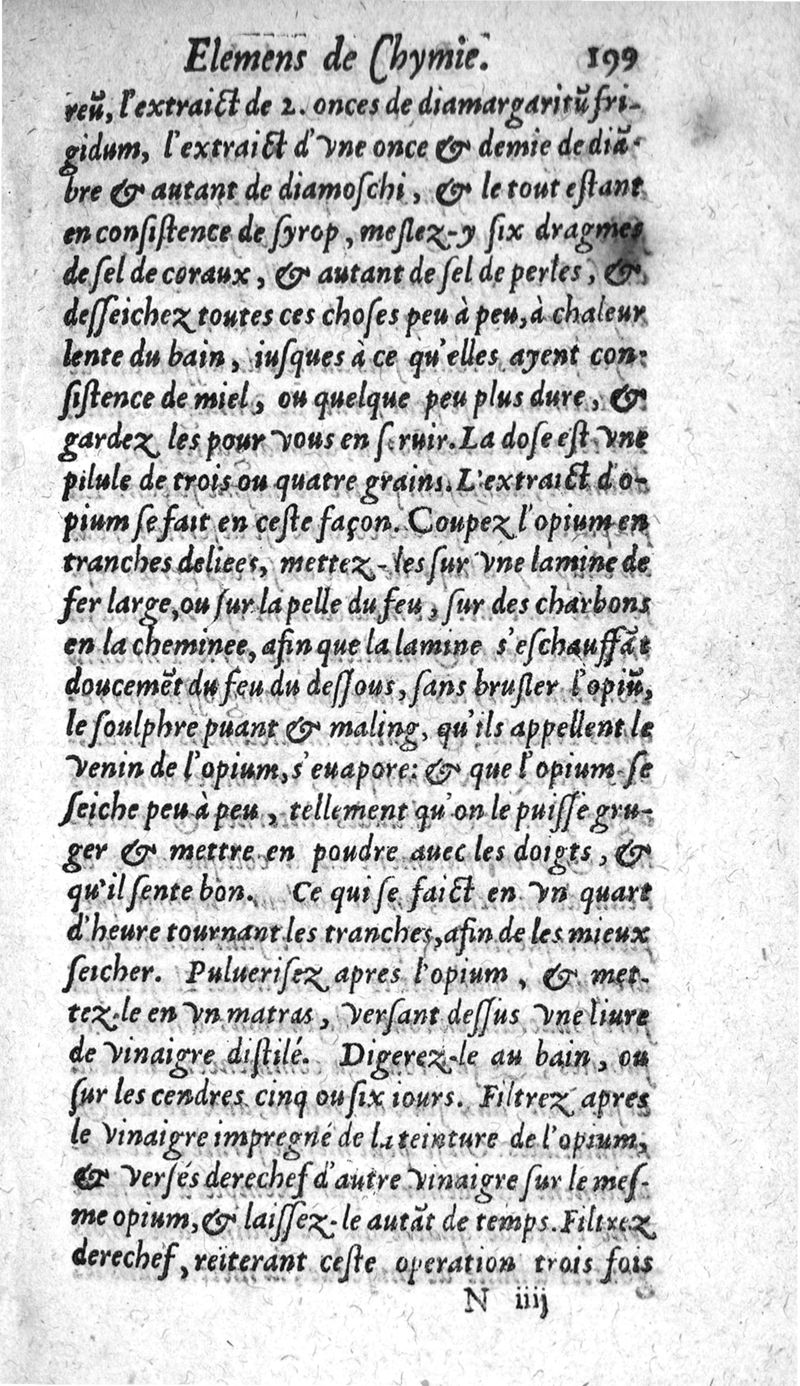 Elemens de Chymie. 199
reũ, l'extraict de 2. onces de diamargaritũ fri-
gidum, l'extraict d'vne once & demie de diã-
bre & autant de diamoſchi, & le tout eſtant
en conſiſtence de ſyrop, meſlez-y ſix dragmes
de ſel de coraux, & autant de ſel de perles, &
deſſeichez toutes ces choſes peu à peu, à chaleur
lente du bain, iuſques à ce qu'elles ayent con-
ſiſtence de miel, ou quelque peu plus dure, &
gardez les pour vous en ſeruir. La doſe eſt vne
pilule de trois ou quatre grains. L'extraict d'o-
pium ſe fait en ceſte façon. Coupez l'opium en
tranches deliees, mettez-les ſur vne lamine de
fer large, ou ſur la pelle du feu, ſur des charbons
en la cheminee, afin que la lamine s'eſchauffãt
doucemẽt du feu du deſſous, ſans bruſler l'opiũ,
le ſoulphre puant & maling, qu'ils appellent le
venin de l'opium, s'euapore: & que l'opium ſe
ſeiche peu à peu, tellement qu'on le puiſſe gru-
ger & mettre en poudre auec les doigts, &
qu'il ſente bon. Ce qui ſe faict en vn quart
d'heure tournant les tranches, afin de les mieux
ſeicher. Pulueriſez apres l'opium, & met-
tez-le en vn matras, verſant deſſus vne liure
de vinaigre diſtilé. Digerez-le au bain, ou
ſur les cendres cinq ou ſix iours. Filtrez apres
le vinaigre impregné de la teinture de l'opium,
& verſés derechef d'autre vinaigre ſur le meſ-
me opium, & laiſſez-le autãt de temps. Filtrez
derechef, reiterant ceſte operation trois fois
N iiij